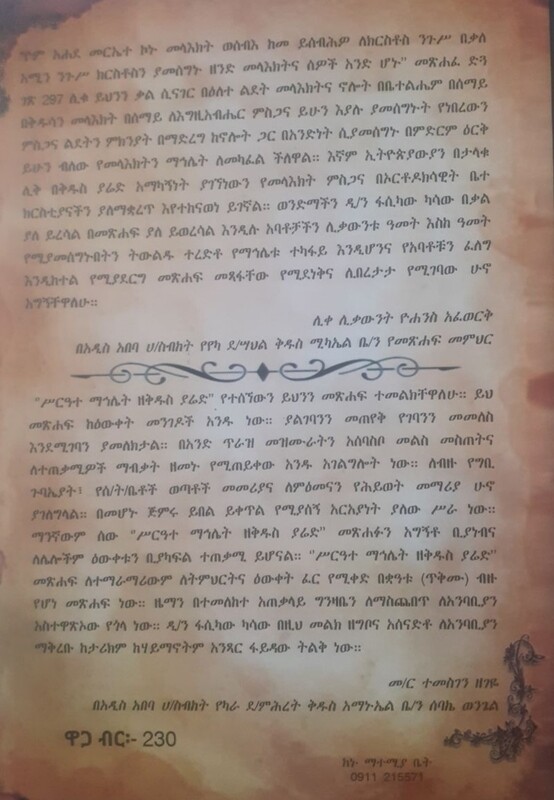 ዋም አሐደ መርኤተ ኮኑ መላእክት ወሰብእ ከመ ይሰብሕዎ ለክርስቶስ ንጉሥ በቃለ
አሚን ንጉሥ ክርስቶስን ያመሰግኑ ዘንድ መላእክትና ሰዎች አንድ ሆኑ" መጽሐፈ ድጓ
ገጽ 297 ሊቁ ይህንን ቃል ሲናገር በዕለተ ልደት መላእክትና ኖሎት በቤተልሔም በሰማይ
በቅዱሳን መላእክት በሰማይ ለእግዚአብሔር ምስጋና ይሁን እያሉ ያመሰግኑት የነበረውን
ምስጋና ልደትን ምክንያት በማድረግ ከኖሎት ጋር በአንድነት ሲያመሰግኑ በምድርም ዕርቅ
ይሁን ብለው የመላእክትን ማኅሌት ለመካፈል ችለዋል። እኛም ኢትዮጵያውያን በታላቁ
ሊቅ በቅዱስ ያሬድ አማካኝነት ያገኘነውን የመላእክት ምስጋና በኦርቶዶክሳዊት ቤተ
ክርስቲያናችን ያለማቋረጥ እየተከናወነ ይገኛል። ወንድማችን ዲ/ን ፋሲካው ካሳው በቃል
ያለ ይረሳል በመጽሐፍ ያለ ይወረሳል እንዲሉ አባቶቻችን ሊቃውንቱ ዓመት እስከ ዓመት
የሚያመሰግኑበትን ትውልዱ ተረድቶ የማኅሌቱ ተካፋይ እንዲሆንና የአባቶቹን ፈለግ
እንዲከተል የሚያደርግ መጽሐፍ መጻፋቸው የሚደነቅና ሊበረታታ የሚገባው ሁኖ
አግኝቸዋለሁ።
ሊቀ ሊቃውንት ዮሐንስ አፈወርቅ
በአዲስ አበባ ሀ/ስብከት የየካ ደ/ሣህል ቅዱስ ሚካኤል ቤ/ን የመጽሐፍ መምህር
"ሥርዓተ ማኅሌት ዘቅዱስ ያሬድ" የተሰኘውን ይህንን መጽሐፍ ተመልክቸዋለሁ። ይህ
መጽሐፍ ከዕውቀት መንገዶች አንዱ ነው። ያልገባንን መጠየቅ የገባንን መመለስ
እንደሚገባን ያመለክታል። በአንድ ጥራዝ መዝሙራትን አሰባስቦ መልስ መስጠትና
ለተጠቃሚዎች ማብቃት ዘመኑ የሚጠይቀው አንዱ አገልግሎት ነው። ለብዙ የግቢ
ጉባኤያት፣ የሰ/ት/ቤቶች ወጣቶች መመሪያና ለምዕመናን የሕይወት መማሪያ ሁኖ
ያገለግላል። በመሆኑ ጅምሩ ይበል ይቀጥል የሚያሰኝ አርአያነት ያለው ሥራ ነው።
ማንኛውም ሰው "ሥርዓተ ማኅሌት ዘቅዱስ ያሬድ" መጽሐፉን አግኝቶ ቢያነብና
ለሌሎችም ዕውቀቱን ቢያካፍል ተጠቃሚ ይሆናል። "ሥርዓተ ማኅሌት ዘቅዱስ ያሬድ"
መጽሐፍ ለተማራማሪውም ለትምህርትና ዕውቀት ፈር የሚቀድ በቋዓቱ (ጥቅሙ) ብዙ
የሆነ መጽሐፍ ነው። ዜማን በተመለከተ አጠቃላይ ግንዛቤን ለማስጨበጥ ለአንባቢያን
አስተዋጽኦው የጎላ ነው። ዲ/ን ፋሲካው ካሳው በዚህ መልክ ዘግቦና አሰናድቶ ለአንባቢያን
ማቅረቡ ከታሪክም ከሃይማኖትም አንጻር ፋይዳው ትልቅ ነው።
መ/ር ተመስገን ዘገዬ
በአዲስ አበባ ሀ/ስብከት የካራ ደ/ምሕረት ቅዱስ አማኑኤል ቤ/ን ሰባኬ ወንጌል
ዋጋ ብር፡- 230
ክኑ ማተሚያ ቤት
0911 215571